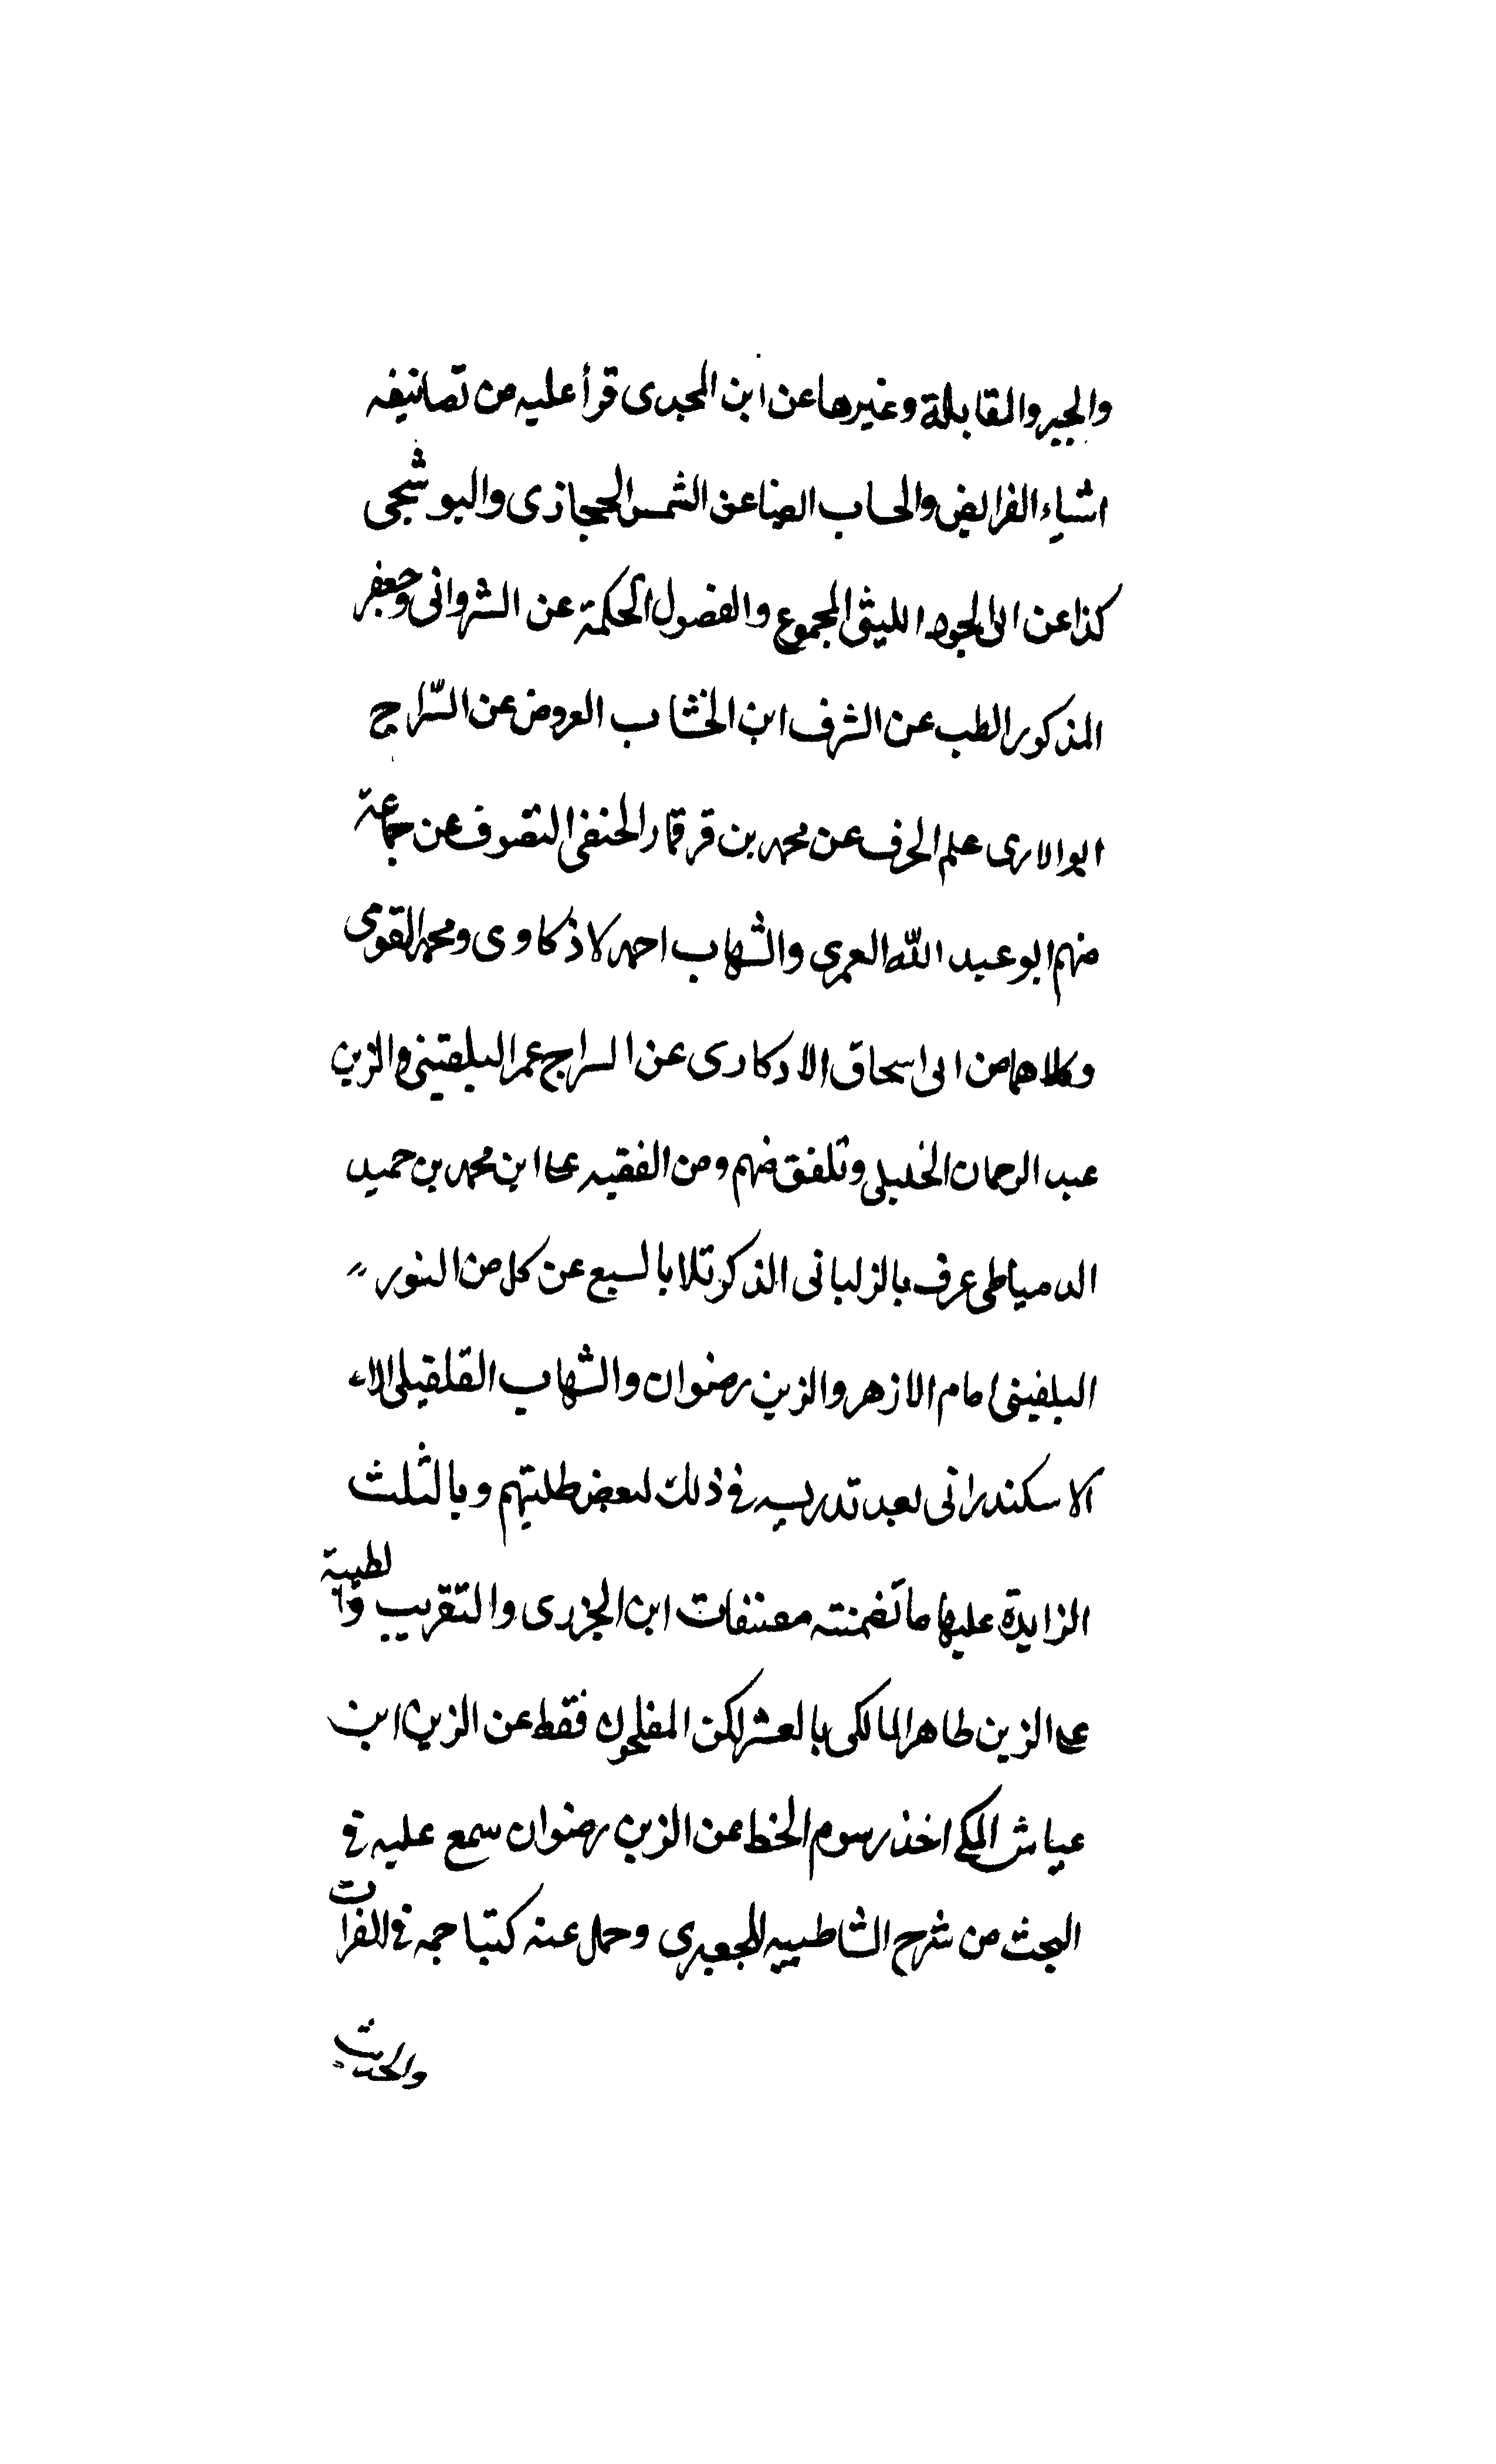 والجبر والمقابلة وغيرها عن ابن المجدى قرأ عليه من تصانيفه
اشياء الفرايض والحساب ايضا عن الشمس الحجازى والبوشجى
كذا عن ابى الجود الليثى المجموع والفصول الحكمة عن الشروانى وجعفر
المذكور الطب عن الشرف ابن الخشاب العروض عن السّراج
الوالارى علم الحرف عن محمد بن قرقمار الحنفى التصوف عن جماعة
منهم ابو عبد الله العمرى والشهاب احمد لاذكاوى ومحمد القومى
وكلاهما من ابى اسحاق الادكارى عن السراج عمر البلقينى والزين
عبد الرحمان الخليلى وتلفق منهم ومن الفقيه على ابن محمد بن حميد
الدمياطى عرف بالزلبانى الذكر تلا بالسبع عن كل من النور
البلفينى امام الازهر والزين رضوان والشهاب القلقيلى الا
الاسكندرانى بعد تدريسه فى ذلك لبعض طلبتهم وبالثلث
الزايدة عليها ما تضمنته مصنفات ابن الجزرى والتقريب والطيبة
على الزين طاهر المالكى بالعشر لكن المفلحون فقط عن الزين ابن
عياش المكى اخذ رسوم الخط عن الزين رضوان سمع عليه فى
البحث من شرح الشاطبيه للجعبرى وحمل عنه كتبا جمه فى القرات
والحديث